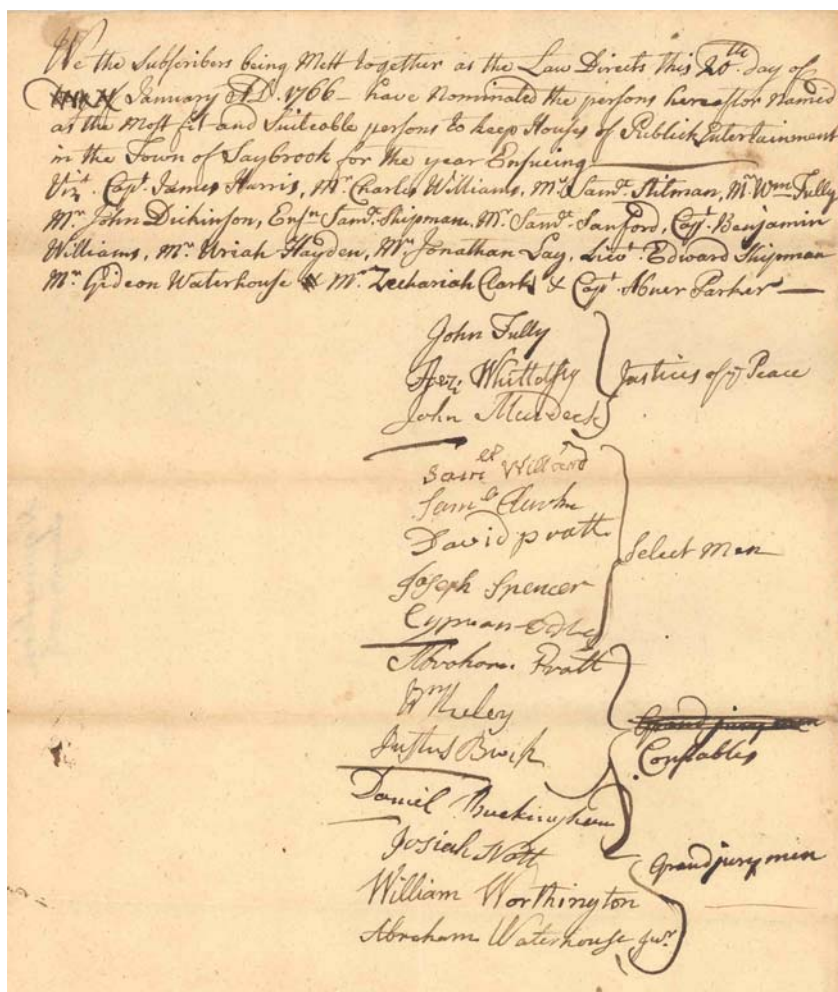 We the Subscribers being Mett together as the Law Directs this 20th day of
January AD. 1766 — have Nominated the persons hereafter Named
as the Most fit and Suiteable persons to keep Houses of Publick Entertainment
in the Town of Saybrook for the year Ensueing
Vizt. Capt. James Harris, Mr. Charles Williams, Mr. Saml. Stilman, Mr. Wm Tully
Mr. John Dickinson, Ensn. Saml. Shipman, Mr. Saml. Sanford, Capt. Benjamin
Williams, Mr. Uriah Hayden, Mr. Jonathan Lay, Lieut. Edward Shipman
Mr. Gideon Waterhouse Mr. Zechariah Clark & Capt. Abner Parker —
John Tully
Whittelsey Justices of ye Peace
John Murdock
Saml Willard
Saml
David pratt
Select Men
Joseph Spencer
Cyprian
Abraham Pratt
Wm
Grand jury men
Justus Buck
Constables
Daniel Buckingham
Josiah Nott
Grand jury men
William Worthington
Abraham Waterhouse Junr